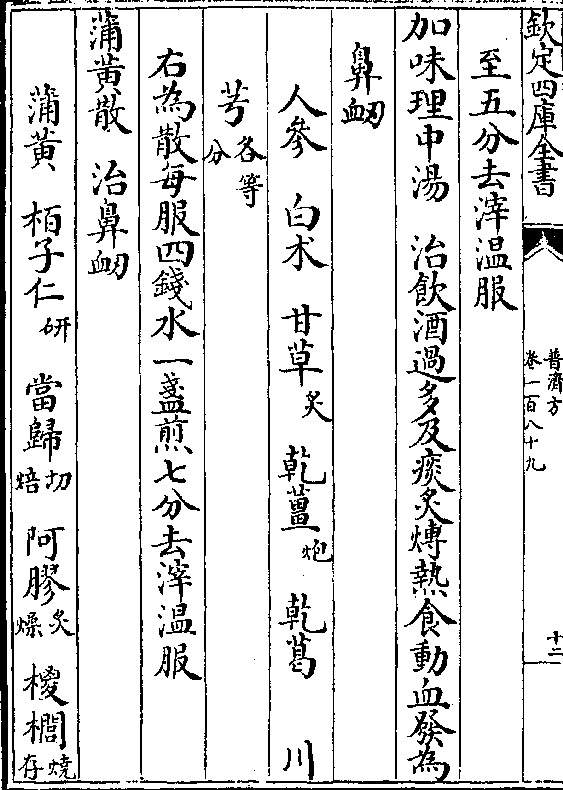 欽定四庫全書
普濟方
卷一百八十九
十二
至五分去滓温服
加味理中湯 治飲酒過多及痰炙煿熱食動血發為
鼻衂
人參 白术 甘草炙 乾薑炮 乾葛 川
芎各等分
右為散每服四錢水一盞煎七分去滓温服
蒲黄散 治鼻衂
蒲黄 栢子仁研 當歸切焙 阿膠炙燥 椶櫚燒存